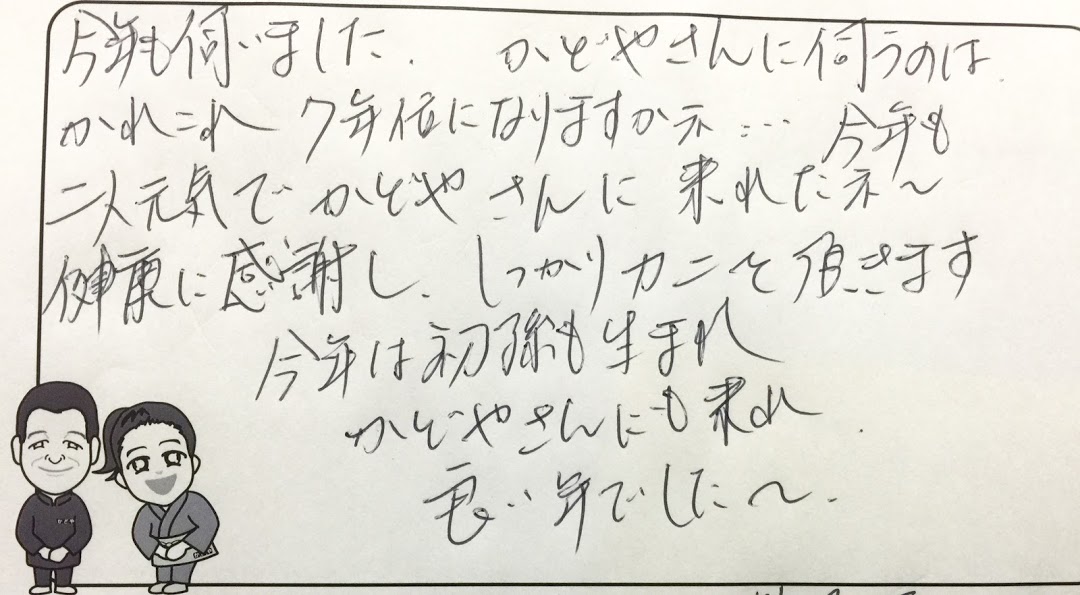 今年も伺いました. かどやさんに伺うのは.
かれこれ 7年位になりますかネ… 今年も
二人元気で かどやさんに 来れたネ〜
健康に感謝し、しっかりカニを頂きます
今年は初孫も生まれ
かどやさんにも来れ.
良い年でした〜.